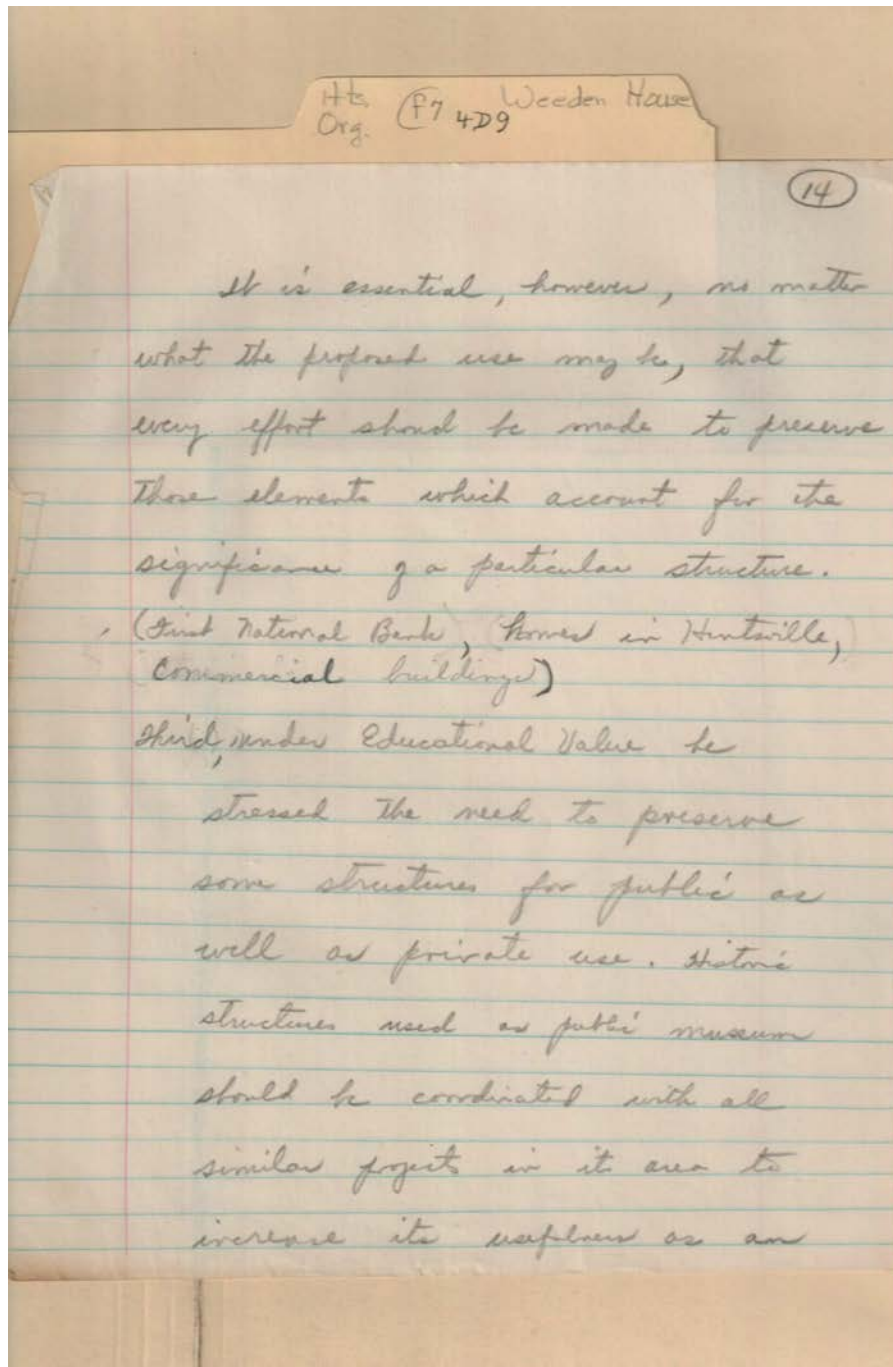 Hts. Weeden House
Org. F7 4D9
14
It is essential, however, no matter
what the proposed use may be, that
every effort shoud be made to preserve
those elements which account for the
significance of a particular structure.
(First National Bank, (homes in Huntsville,)
(Commercial buildings)
Third, under Educational Value he
stressed the need to preserve
some structures for public as
well as private use. Historic
structures used as public museum
should be coordinated with all
similar projects in its area to
increase its usefulness as an